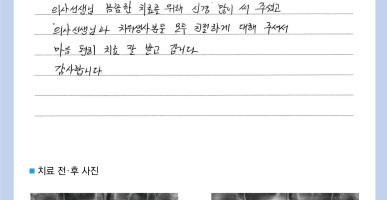 의사선생님 꼼꼼한 치료를 위해 신경 많이 써 주셨고
의사선생님과 치위생사분들 모두 친절하게 대해 주셔서
마음 편히 치료 잘 받고 갑니다
감사합니다
■ 치료 전·후 사진